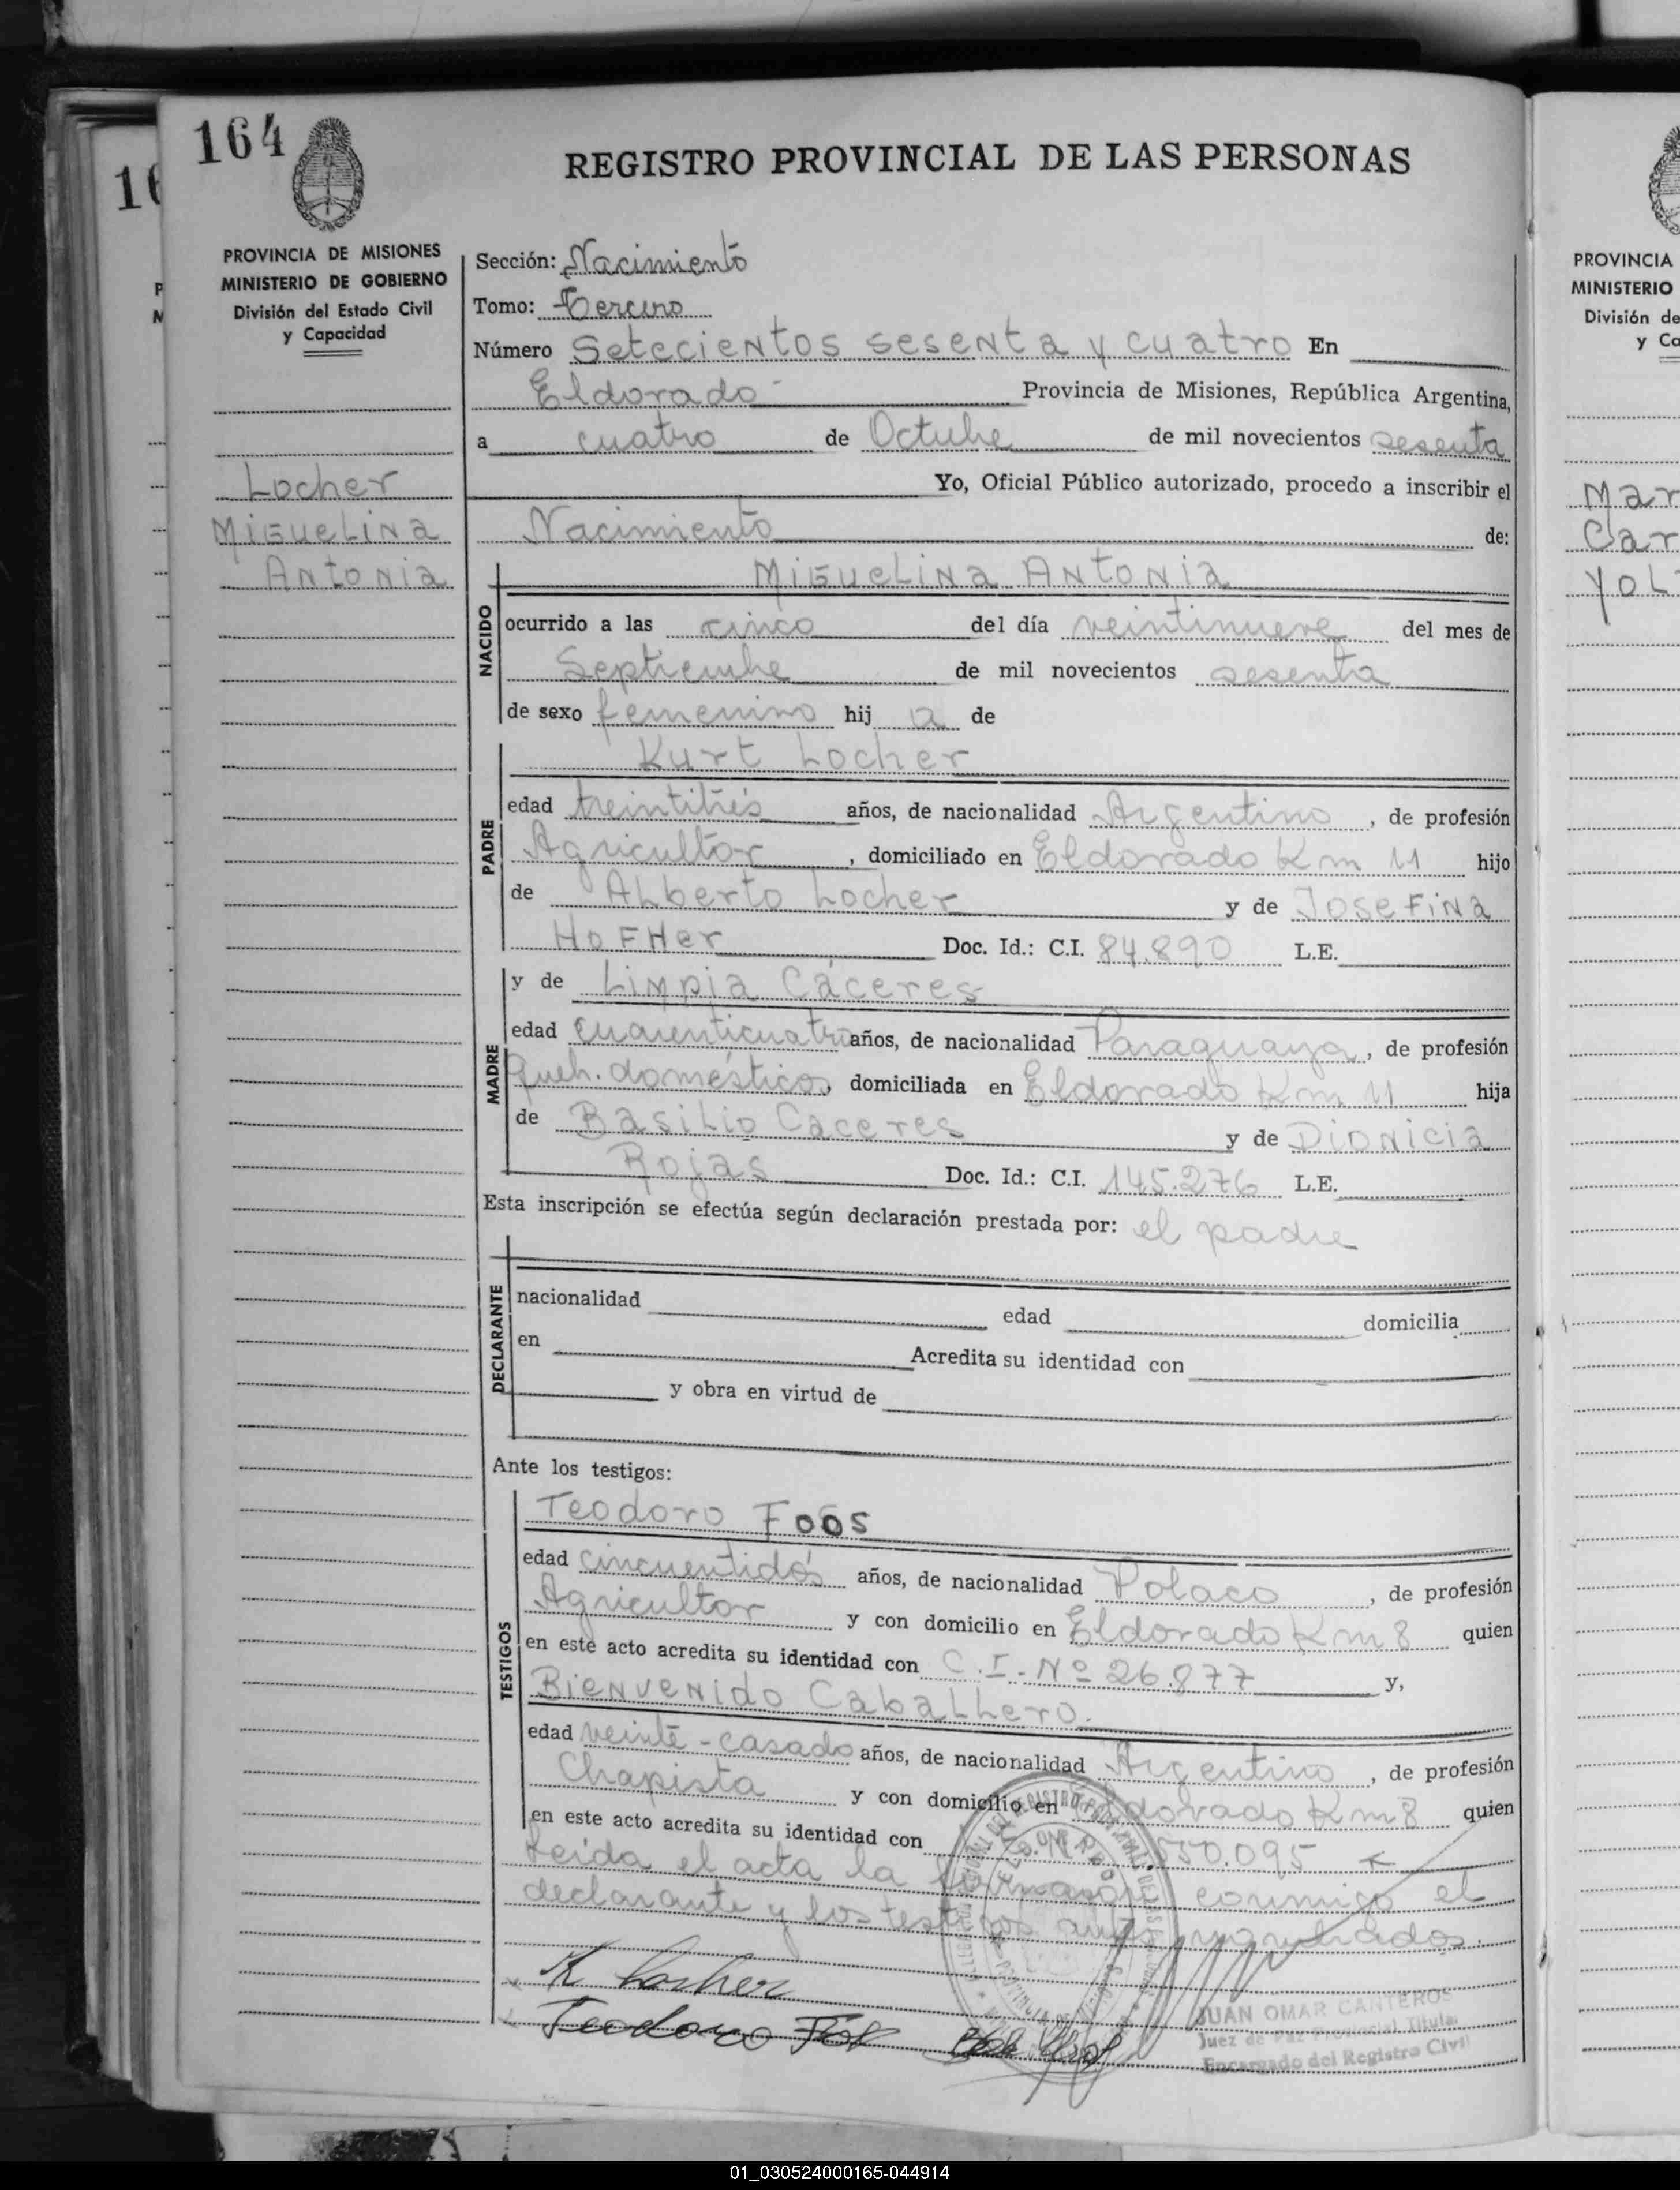 164
REGISTRO PROVINCIAL DE LAS PERSONAS
PROVINCIA DE MISIONES
MINISTERIO DE GOBIERNO
División del Estado Civil
y Capacidad
Locher
Miguelina
Antonia
Sección: Nacimiento
Tomo: Tercero
Número Setecientos sesenta y cuatro En
Eldorado Provincia de Misiones, República Argentina,
a cuatro de Octubre de mil novecientos sesenta
Yo, Oficial Público autorizado, procedo a inscribir el
Nacimiento de:
NACIDO
Miguelina Antonia
ocurrido a las cinco del día veintinueve del mes de
Septiembre de mil novecientos sesenta
de sexo femenino hij a de
PADRE
Kurt Locher
edad treintitrés años, de nacionalidad Argentino, de profesión
Agricultor, domiciliado en Eldorado Km 11 hijo
de Alberto Locher y de Josefina
Hofher Doc. Id.: C.I. 84.890 L.E.
MADRE
y de Limpia Cáceres
edad cuarenticuatro años, de nacionalidad Paraguaya, de profesión
Queh. domésticos, domiciliada en Eldorado Km 11 hija
de Basilio Caceres y de Dionicia
Rojas Doc. Id.: C.I. 145.276 L.E.
Esta inscripción se efectúa según declaración prestada por: el padre
DECLARANTE
nacionalidad edad domicilia
en Acredita su identidad con
y obra en virtud de
Ante los testigos:
TESTIGOS
Teodoro Foos
edad cincuentidós años, de nacionalidad Polaco, de profesión
Agricultor y con domicilio en Eldorado Km 8 quien
en este acto acredita su identidad con C.I. Nº 26.877 y,
Bienvenido Caballero.
edad veinte - casado años, de nacionalidad Argentino, de profesión
Chapista y con domicilio en Eldorado Km 8 quien
en este acto acredita su identidad con 550.095
Leída el acta la firmaron conmigo el
declarante y los testigos
K Locher
Teodoro Fos
JUAN OMAR CANTEROS
Juez de Paz Provincial Titular
Encargado del Registro Civil
PROVINCIA
MINISTERIO
División de
y Ca
Mar
Car
Yol
01_030524000165-044914